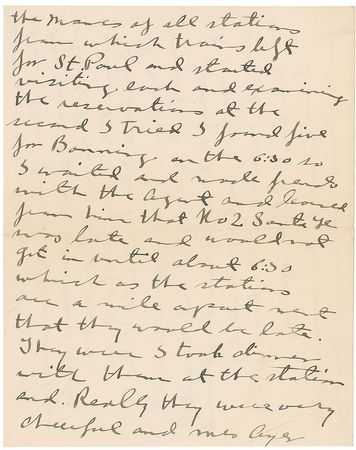 the names of all stations
from which trains left
for St. Paul and started
visiting each and examining
the reservations at the
second I tried I found five
for Banning on the 6:30 so
I waited and made friends
with the Agent and learned
from him that No 2 Santa Fe
was late and would not
get in until about 6:30
which as the stations
are a mile apart meant
that they would be late.
They were I took dinner
with them at the station
and. Really they were very
cheerful and Mrs Ayer